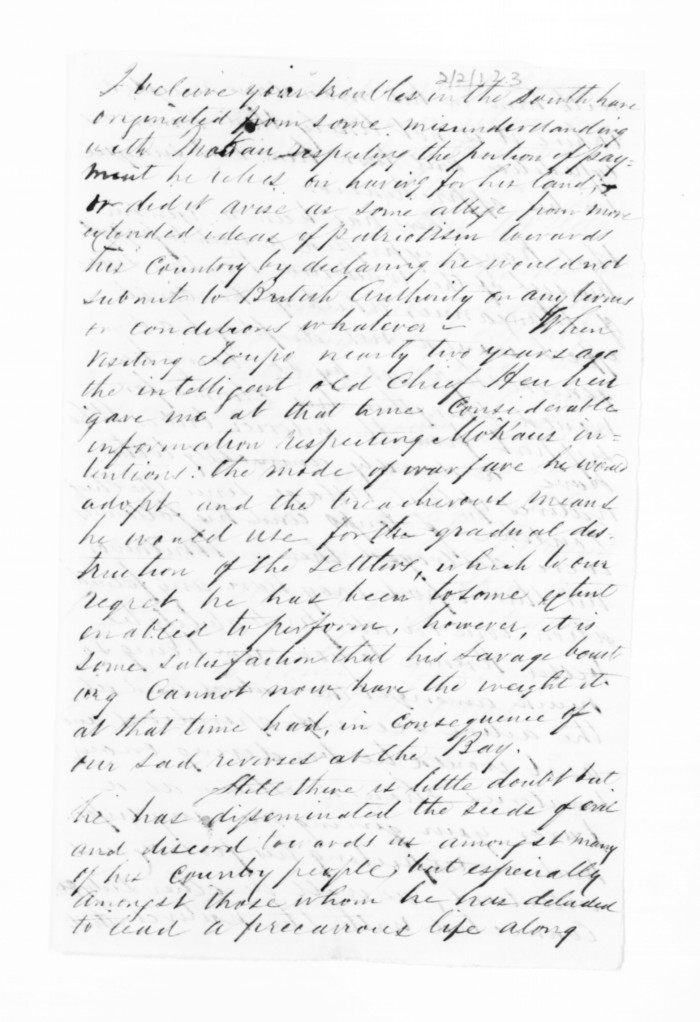 2/2/123
I beleive your troubles in the South have
originated from some misunderstanding
with Mokau respecting the portion of pay=
ment he relies on having for his land,
or did it arise as some allege from more
extended ideas of patriotism towards
his Country by declaring he would not
submit to British Authority on any terms
or conditions whatever – When
visiting Taupo nearly two years ago
the intelligent old Chief Heuheu
gave me at that time Considerable
information respecting Mokaus in=
tentions: the mode of warfare he would
adopt and the treacherous means
he would use for the gradual des=
truction of the Settlers, which to our
regret he has been to some extent
enabled to perform, however, it is
some satisfaction that his savage boast
ing Cannot now have the weight it
at that time had, in consequence of
our sad reverses at the Bay.
Still there is little doubt but
he has disseminated the seeds of evil
and discord towards us amongst many
of his Country people, but especially
amongst those whom he has deluded
to lead a precarious life along